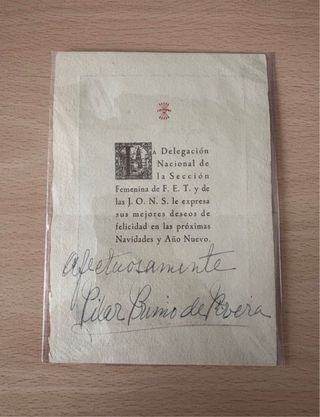 LA Delegación
Nacional de
la Sección
Femenina de F. E. T. y de
las J. O. N. S. le expresa
sus mejores deseos de
felicidad en las próximas
Navidades y Año Nuevo.
afectuosamente
Pilar Primo de Rivera